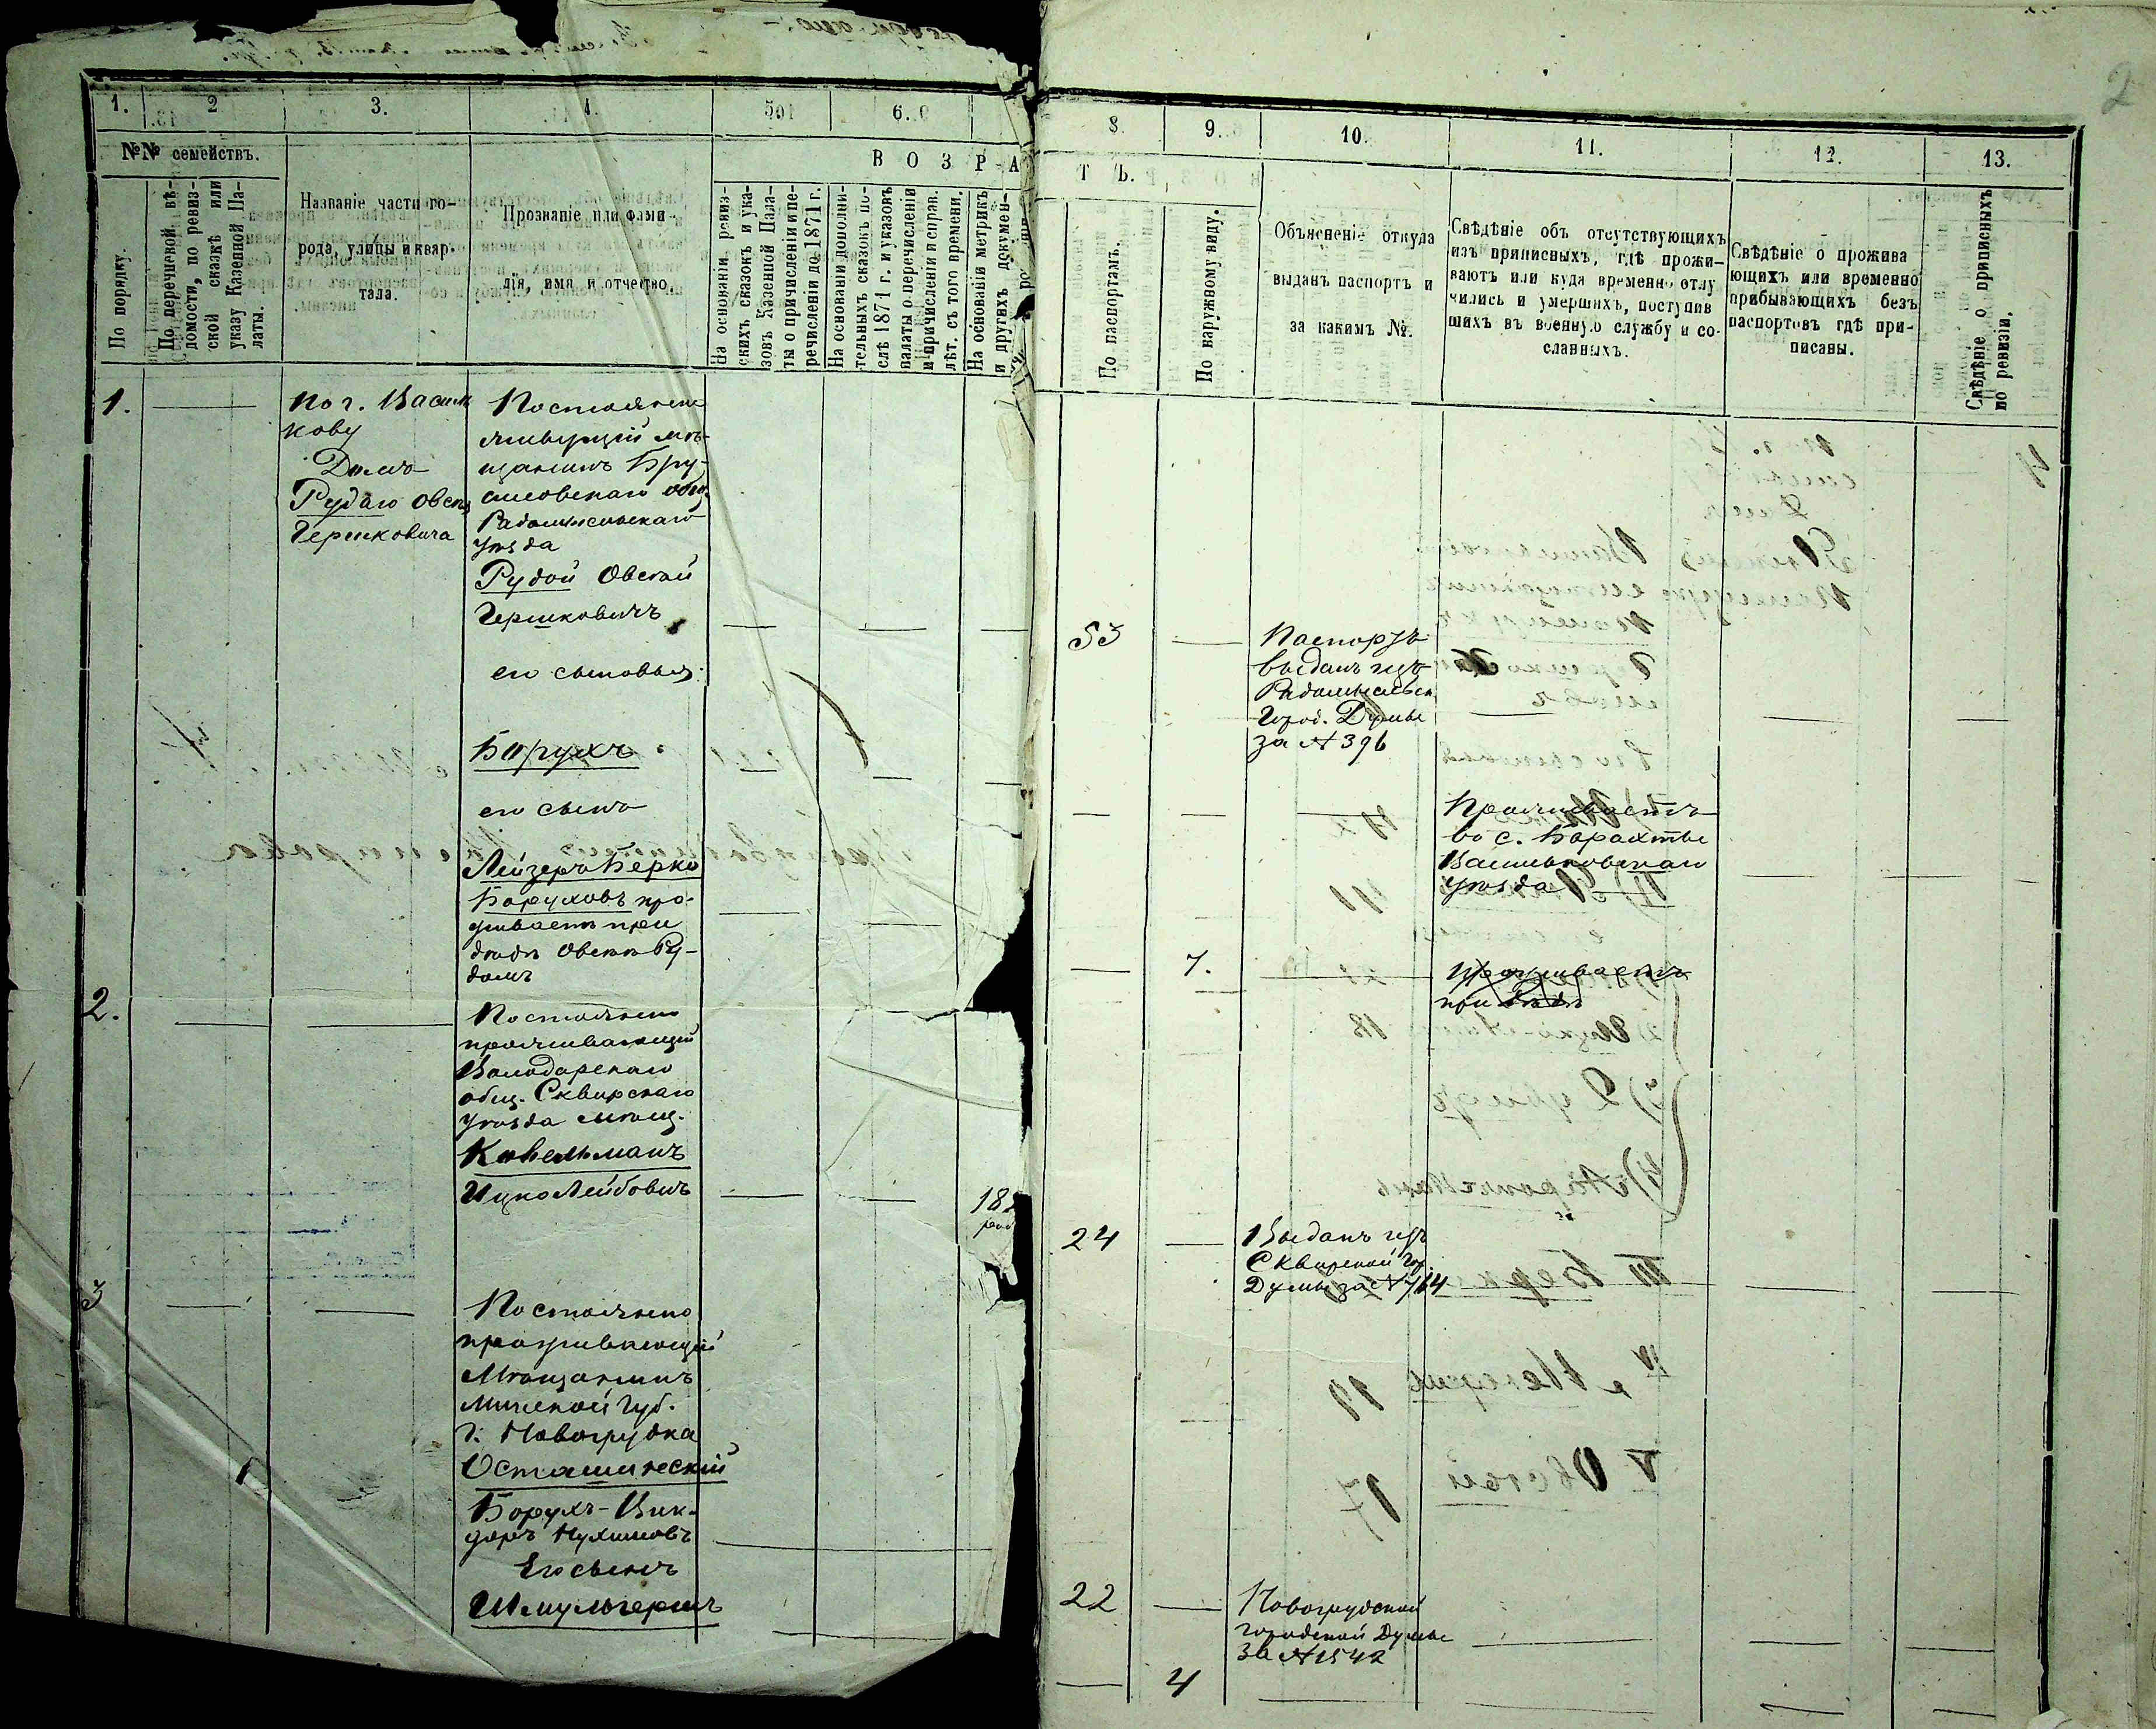 2
1.
2
3.
4.
5
6.
8.
9.
10.
11.
12.
13.
№№ семействъ.
По порядку.
По перечневой вѣ-
домости, по ревиз-
ской сказкѣ или
указу Казенной Па-
латы.
Названіе части го-
рода, улицы и квар-
тала.
Прозваніе или фами-
лія, имя и отчество
В О З Р А
На основаніи ревиз-
скихъ сказокъ и ука-
зовъ Казенной Пала-
ты о причисленіи и пе-
речисленіи до 1871 г.
На основаніи дополни-
тельныхъ сказокъ по-
слѣ 1871 г. и указовъ
палаты о перечисленіи
и причисленіи и справ.
лѣт. съ того времени.
На основаніи метрикъ
и другихъ докумен-
Т Ъ.
По паспортамъ.
По наружному виду.
Объясненіе откуда
выданъ паспортъ и
за какимъ №.
Свѣдѣніе объ отсутствующихъ
изъ приписныхъ, гдѣ прожи-
ваютъ или куда временно отлу
чились и умершихъ, поступив
шихъ въ военную службу и со-
сланныхъ.
Свѣдѣніе о прожива
ющихъ или временно
прибывающихъ безъ
паспортовъ гдѣ при-
писаны.
Свѣдѣніе о приписныхъ
по ревизіи.
1.
по г. Василь
кову
Домъ
Рудаго Овсѣя
Гершковича
Постоянно
живущій мѣ-
щанинъ Бру-
силовскаго общ.
Радомысльскаго
уѣзда
Рудой Овсѣй
Гершковичъ
его сыновья:
Борухъ
его сынъ
Лейзеръ Берко
Боруховъ про-
живаетъ при
дѣдѣ Овсѣѣ Ру-
домъ
53
Паспортъ
выданъ изъ
Радомысльск
Город. Думы
за № 396
Проживаетъ
въ с. Барахты
Васильковскаго
уѣзда
7.
проживаетъ
при дѣдѣ
2.
Постоянно
проживающій
Володарскаго
общ. Сквирскаго
уѣзда мѣщ.
Кивельманъ
Ицко Лейбовичъ
18
24
Выданъ изъ
Сквирской Гор.
Думы за № 764
3
Постоянно
проживающій
Мѣщанинъ
Минской Губ.
г. Новогрудка
Осташинскій
Борухъ-Вик-
доръ Нухимовъ
Его сынъ
Шмульгершъ
22
Новогрудской
городской Думы
за № 1542
4